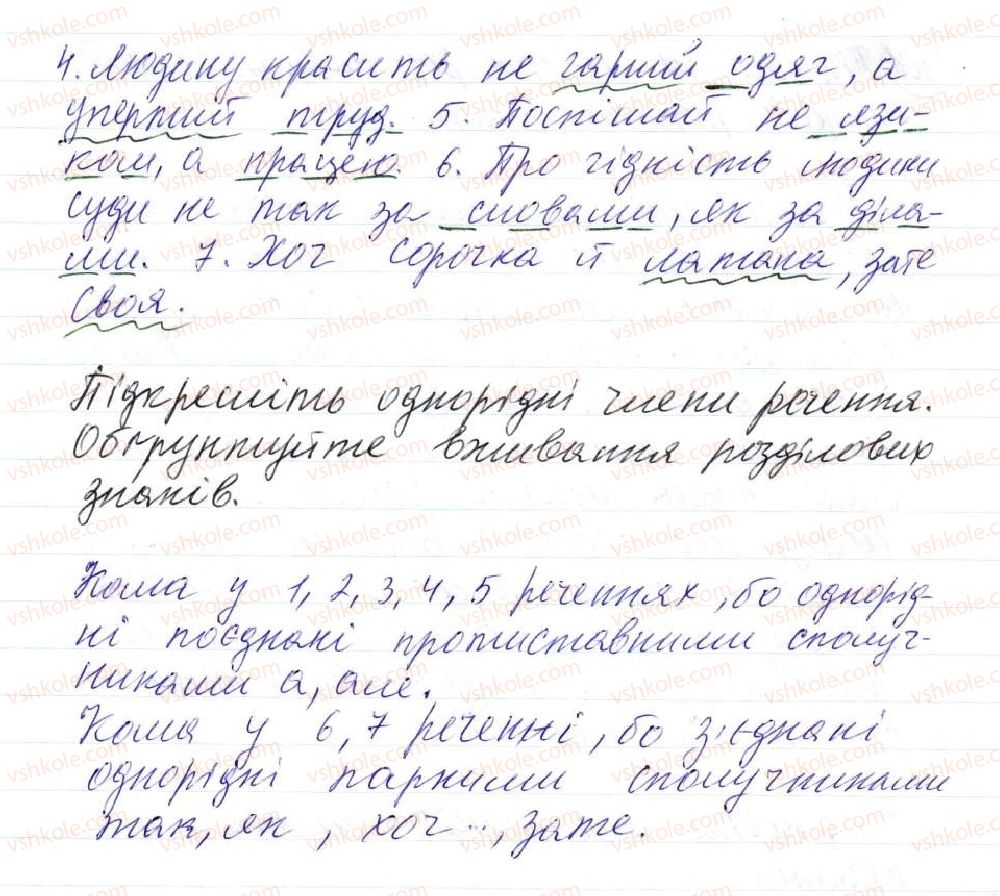 4. Людину красить не гарний одяг, а
упертий труд. 5. Поспішай не язи-
ком, а працею. 6. Про гідність людини
суди не так за словами, як за діла-
ми. 7. Хоч сорочка й латана, зате
своя.
Підкресліть однорідні члени речення.
Обґрунтуйте вживання розділових
знаків.
Кома у 1, 2, 3, 4, 5 реченнях, бо однорід-
ні поєднані протиставними сполуч-
никами а, але.
Кома у 6, 7 реченні, бо з'єднані
однорідні парними сполучниками
так, як , хоч ..., зате.